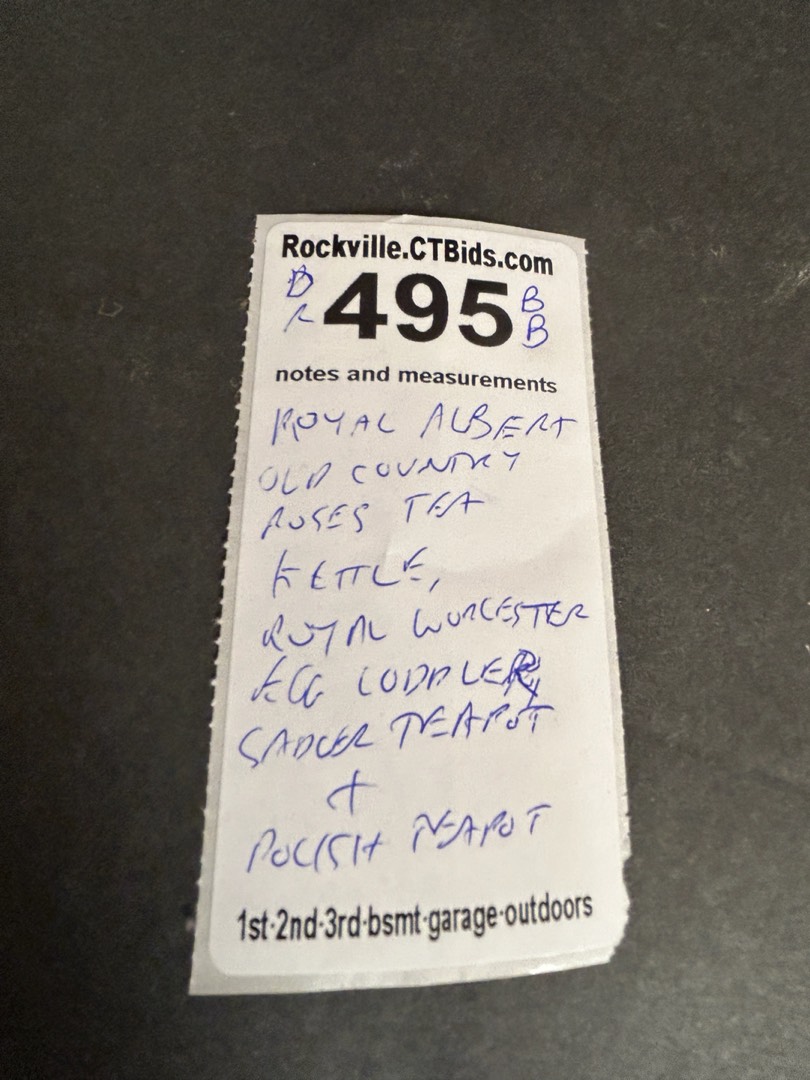 Rockville.CTBids.com
B 495 B
R B
notes and measurements
ROYAL ALBERT
OLD COUNTRY
ROSES TEA
KETTLE,
ROYAL WORCESTER
EGG CODDLER,
SADLER TEAPOT
+
POLISH TEAPOT
1st·2nd·3rd·bsmt·garage·outdoors